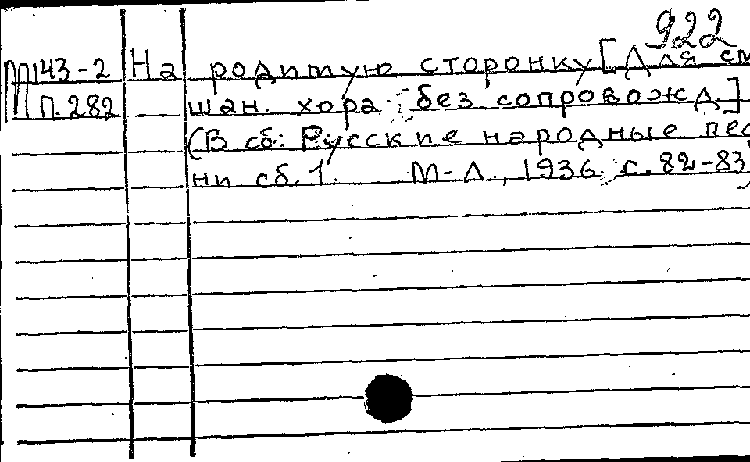 922
М143-2 На родимую сторонку [Для см
П.282 шан. хора без сопровожд.]
(В сб: Русские народные пес
ни сб. 1. М-Л., 1936 с. 82-83